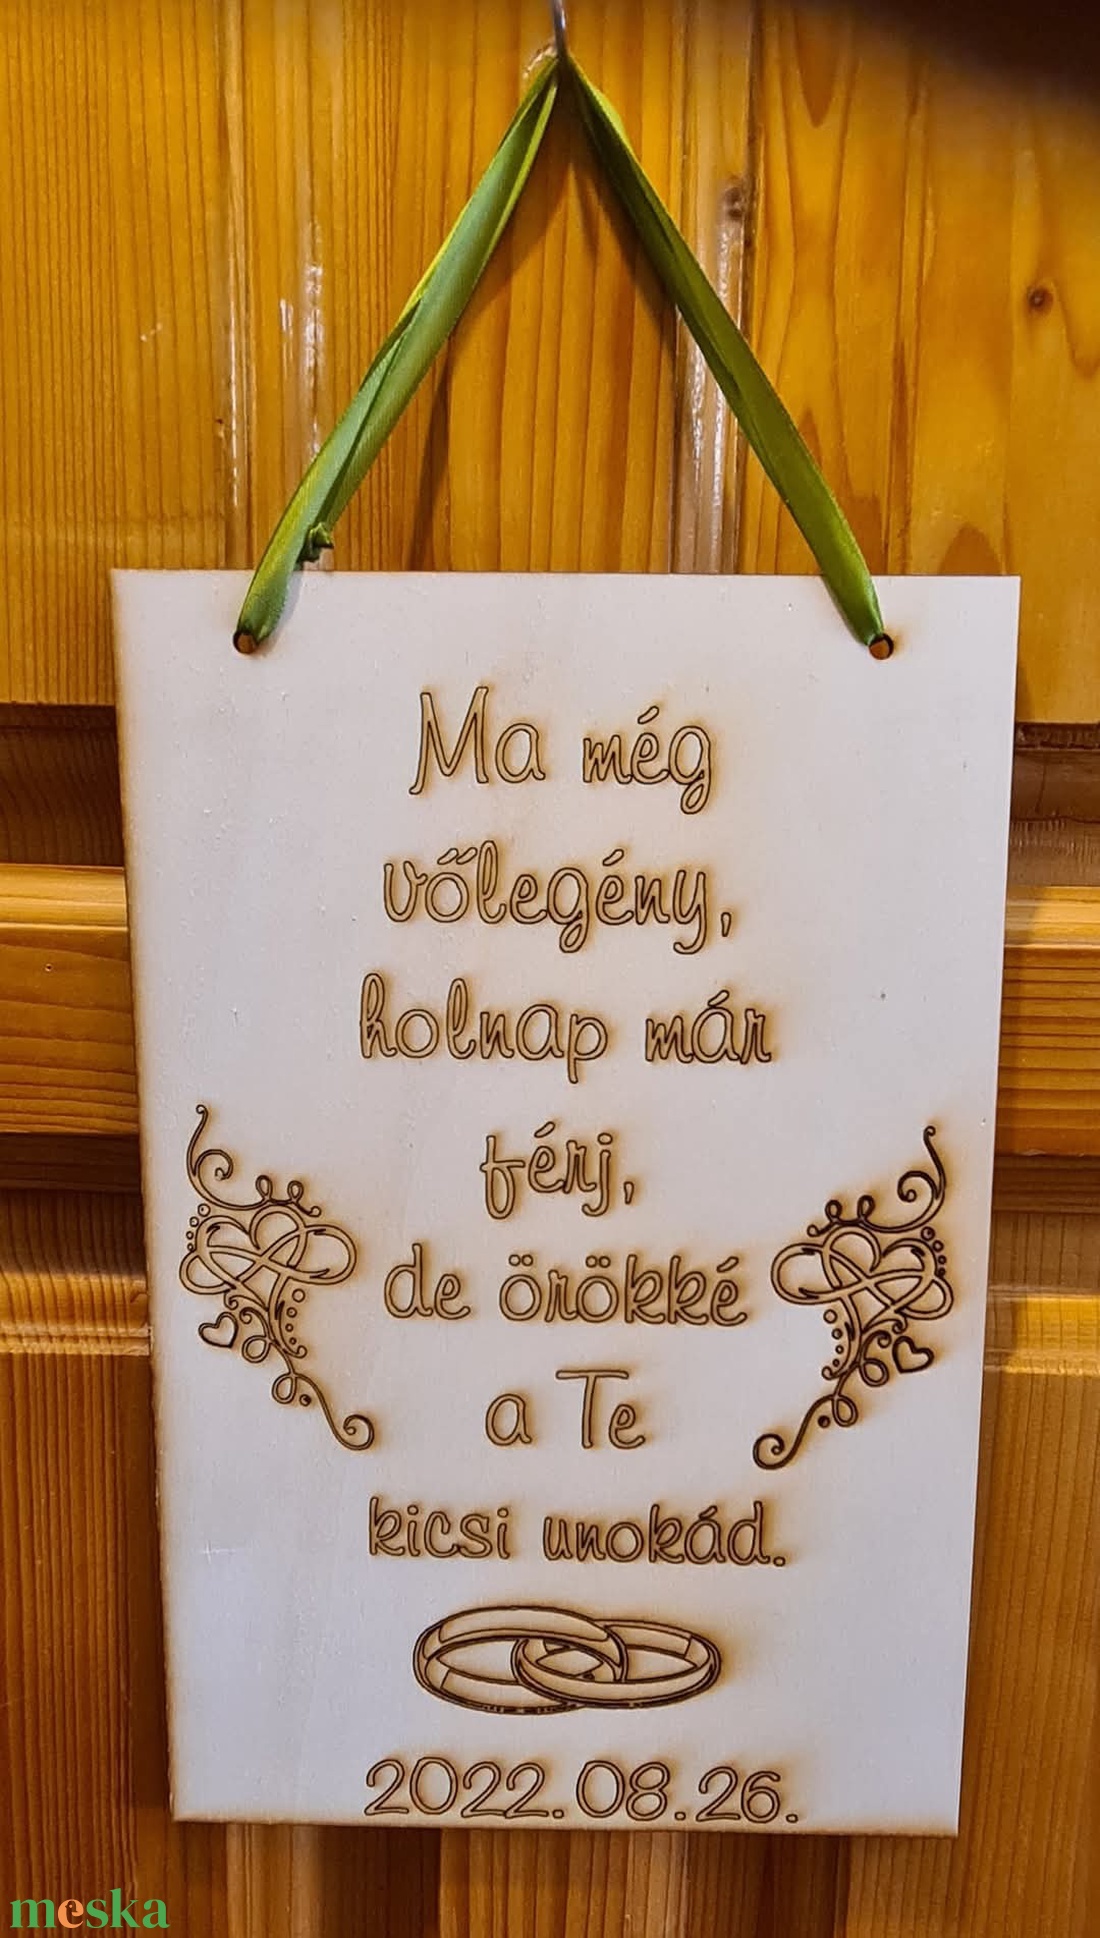 Ma még
vőlegény,
holnap már
férj,
de örökké
a Te
kicsi unokád.
2022.08.26.
meska